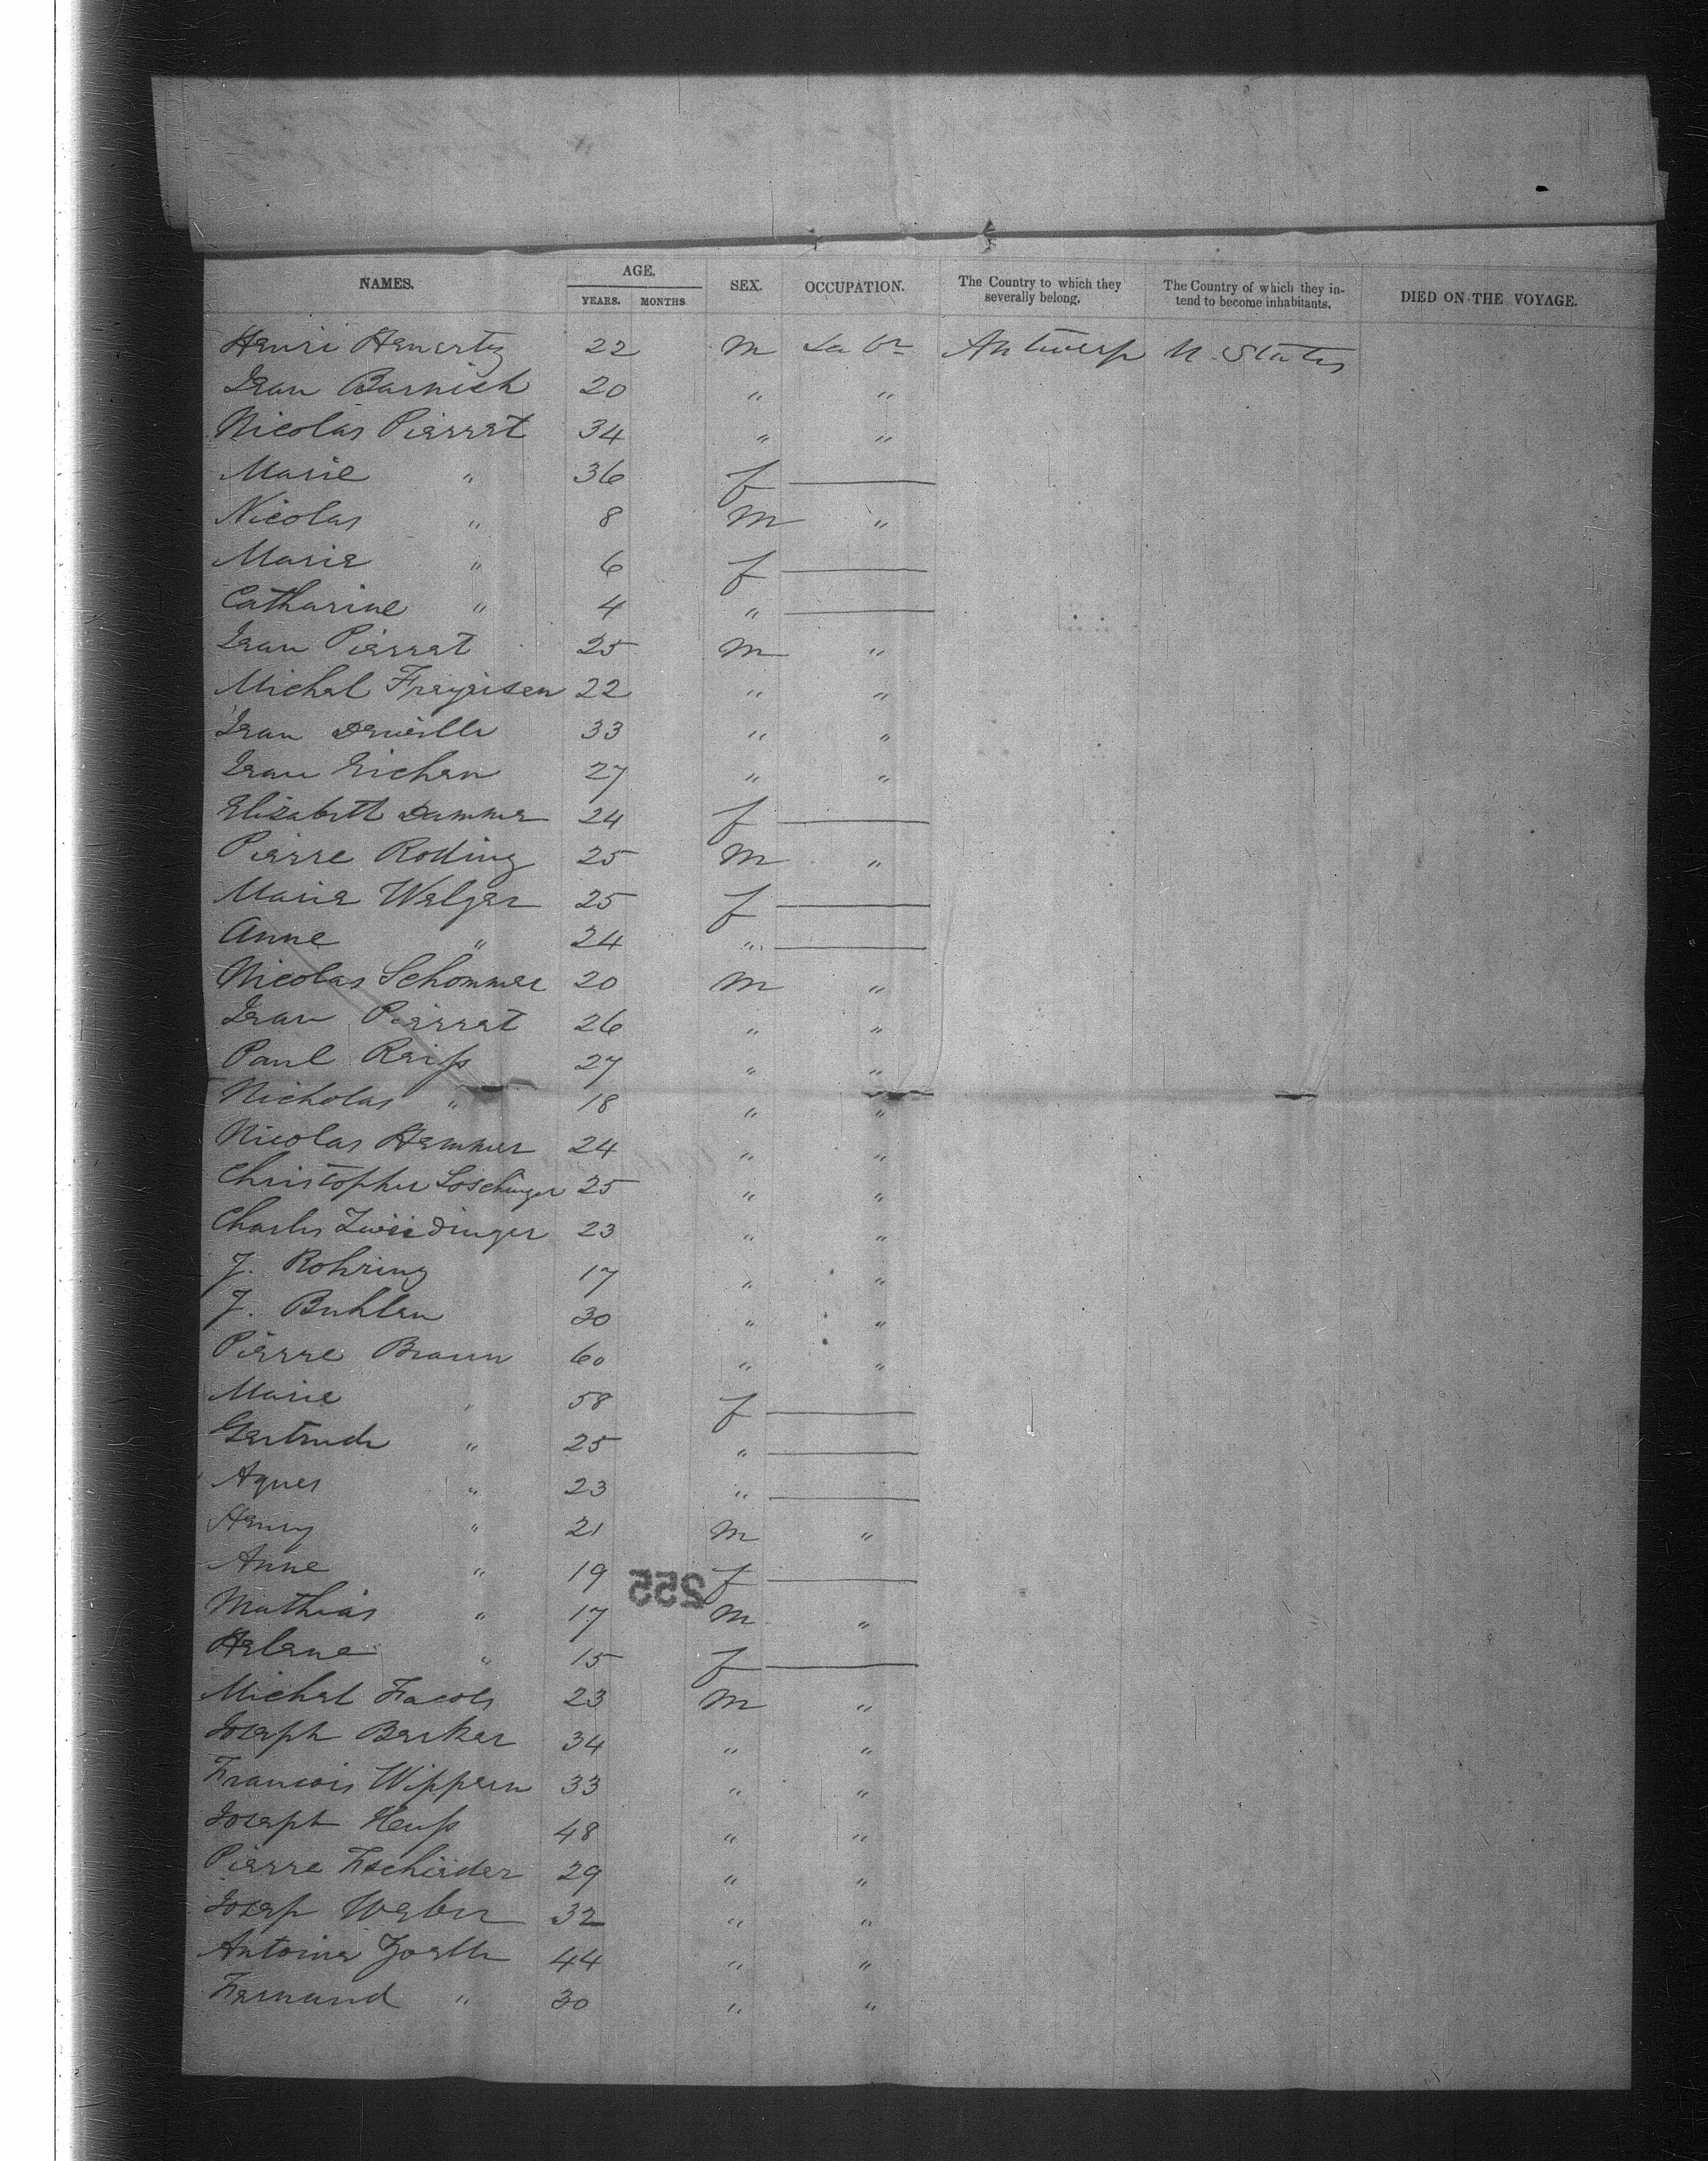 NAMES. AGE. SEX. OCCUPATION. The Country to which they severally belong. The Country of which they intend to become inhabitants. DIED ON THE VOYAGE.
YEARS. MONTHS
Henri Henertz 22 m Labr Antwerp U. States
Jean Barnich 20 " "
Nicolas Pierret 34 " "
Marie " 36 f —
Nicolas " 8 m "
Marie " 6 f —
Catharine " 4 " —
Jean Pierret 25 m "
Michel 22 " "
Jean 33 " "
Jean Eichen 27 " "
Elizabeth Dammer 24 f —
Pierre Roding 25 m "
Marie Welger 25 f —
Anne " 24 " —
Nicolas Schommer 20 m "
Jean Pierret 26 " "
Paul Reiss 27 " "
Nicholas " 18 " "
Nicolas Hemmer 24 " "
Christopher Loschinger 25 " "
Charles Zweidinger 23 " "
J. Rohring 17 " "
J. Buhlen 30 " "
Pierre Braun 60 " "
Marie " 58 f —
Gertrude " 25 " —
Agnes " 23 " —
Henry " 21 m "
Anne " 19 f —
255
Mathias " 17 m "
Helene " 15 f —
Michel Jacobs 23 m "
Joseph Berker 34 " "
Francois Wippern 33 " "
Joseph Heuss 48 " "
Pierre Tscheider 29 " "
Josep Weber 32 " "
Antoine Zoelle 44 " "
Fernand " 30 " "